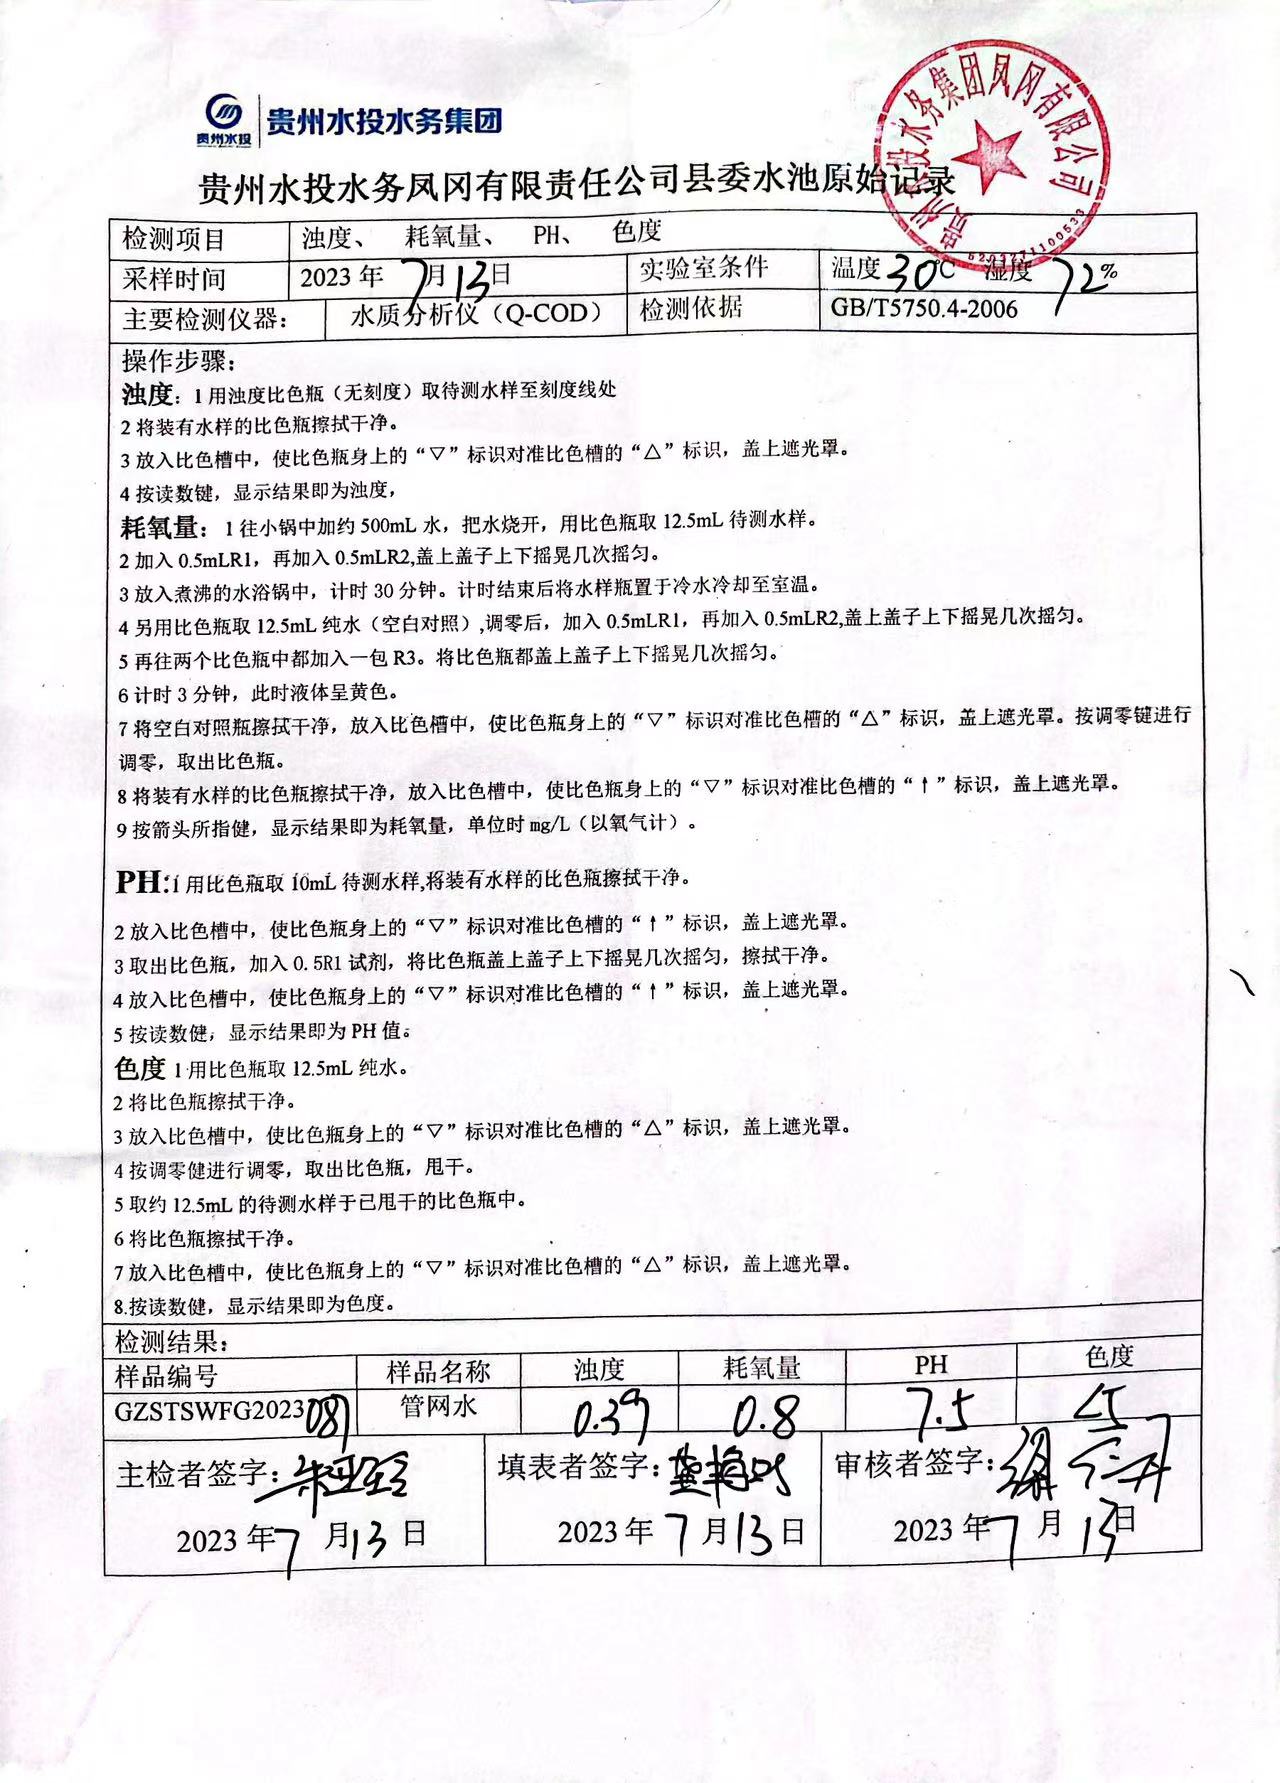 贵州水投
贵州水投水务集团
贵州水投水务集团凤冈有限公司
5203271100533
贵州水投水务凤冈有限责任公司县委水池原始记录
检测项目 浊度、 耗氧量、 PH、 色度
采样时间 2023 年 7月 13日 实验室条件 温度 30℃ 湿度 72%
主要检测仪器： 水质分析仪（Q-COD） 检测依据 GB/T5750.4-2006
操作步骤：
浊度：1 用浊度比色瓶（无刻度）取待测水样至刻度线处
2 将装有水样的比色瓶擦拭干净。
3 放入比色槽中，使比色瓶身上的“▽”标识对准比色槽的“△”标识，盖上遮光罩。
4 按读数键，显示结果即为浊度，
耗氧量：1 往小锅中加约 500mL 水，把水烧开，用比色瓶取 12.5mL 待测水样。
2 加入 0.5mLR1，再加入 0.5mLR2,盖上盖子上下摇晃几次摇匀。
3 放入煮沸的水浴锅中，计时 30 分钟。计时结束后将水样瓶置于冷水冷却至室温。
4 另用比色瓶取 12.5mL 纯水（空白对照）,调零后，加入 0.5mLR1，再加入 0.5mLR2,盖上盖子上下摇晃几次摇匀。
5 再往两个比色瓶中都加入一包 R3。将比色瓶都盖上盖子上下摇晃几次摇匀。
6 计时 3 分钟，此时液体呈黄色。
7 将空白对照瓶擦拭干净，放入比色槽中，使比色瓶身上的“▽”标识对准比色槽的“△”标识，盖上遮光罩。按调零键进行
调零，取出比色瓶。
8 将装有水样的比色瓶擦拭干净，放入比色槽中，使比色瓶身上的“▽”标识对准比色槽的“↑”标识，盖上遮光罩。
9 按箭头所指健，显示结果即为耗氧量，单位时 mg/L（以氧气计）。
PH:1 用比色瓶取 10mL 待测水样,将装有水样的比色瓶擦拭干净。
2 放入比色槽中，使比色瓶身上的“▽”标识对准比色槽的“↑”标识，盖上遮光罩。
3 取出比色瓶，加入 0.5R1 试剂，将比色瓶盖上盖子上下摇晃几次摇匀，擦拭干净。
4 放入比色槽中，使比色瓶身上的“▽”标识对准比色槽的“↑”标识，盖上遮光罩。
5 按读数健，显示结果即为 PH 值。
色度 1 用比色瓶取 12.5mL 纯水。
2 将比色瓶擦拭干净。
3 放入比色槽中，使比色瓶身上的“▽”标识对准比色槽的“△”标识，盖上遮光罩。
4 按调零健进行调零，取出比色瓶，甩干。
5 取约 12.5mL 的待测水样于已甩干的比色瓶中。
6 将比色瓶擦拭干净。
7 放入比色槽中，使比色瓶身上的“▽”标识对准比色槽的“△”标识，盖上遮光罩。
8.按读数健，显示结果即为色度。
检测结果：
样品编号 样品名称 浊度 耗氧量 PH 色度
GZSTSWFG2023087 管网水 0.39 0.8 7.5 <5
主检者签字： 填表者签字： 审核者签字：
2023 年 7 月 13 日 2023 年 7 月 13 日 2023 年 7 月 13 日